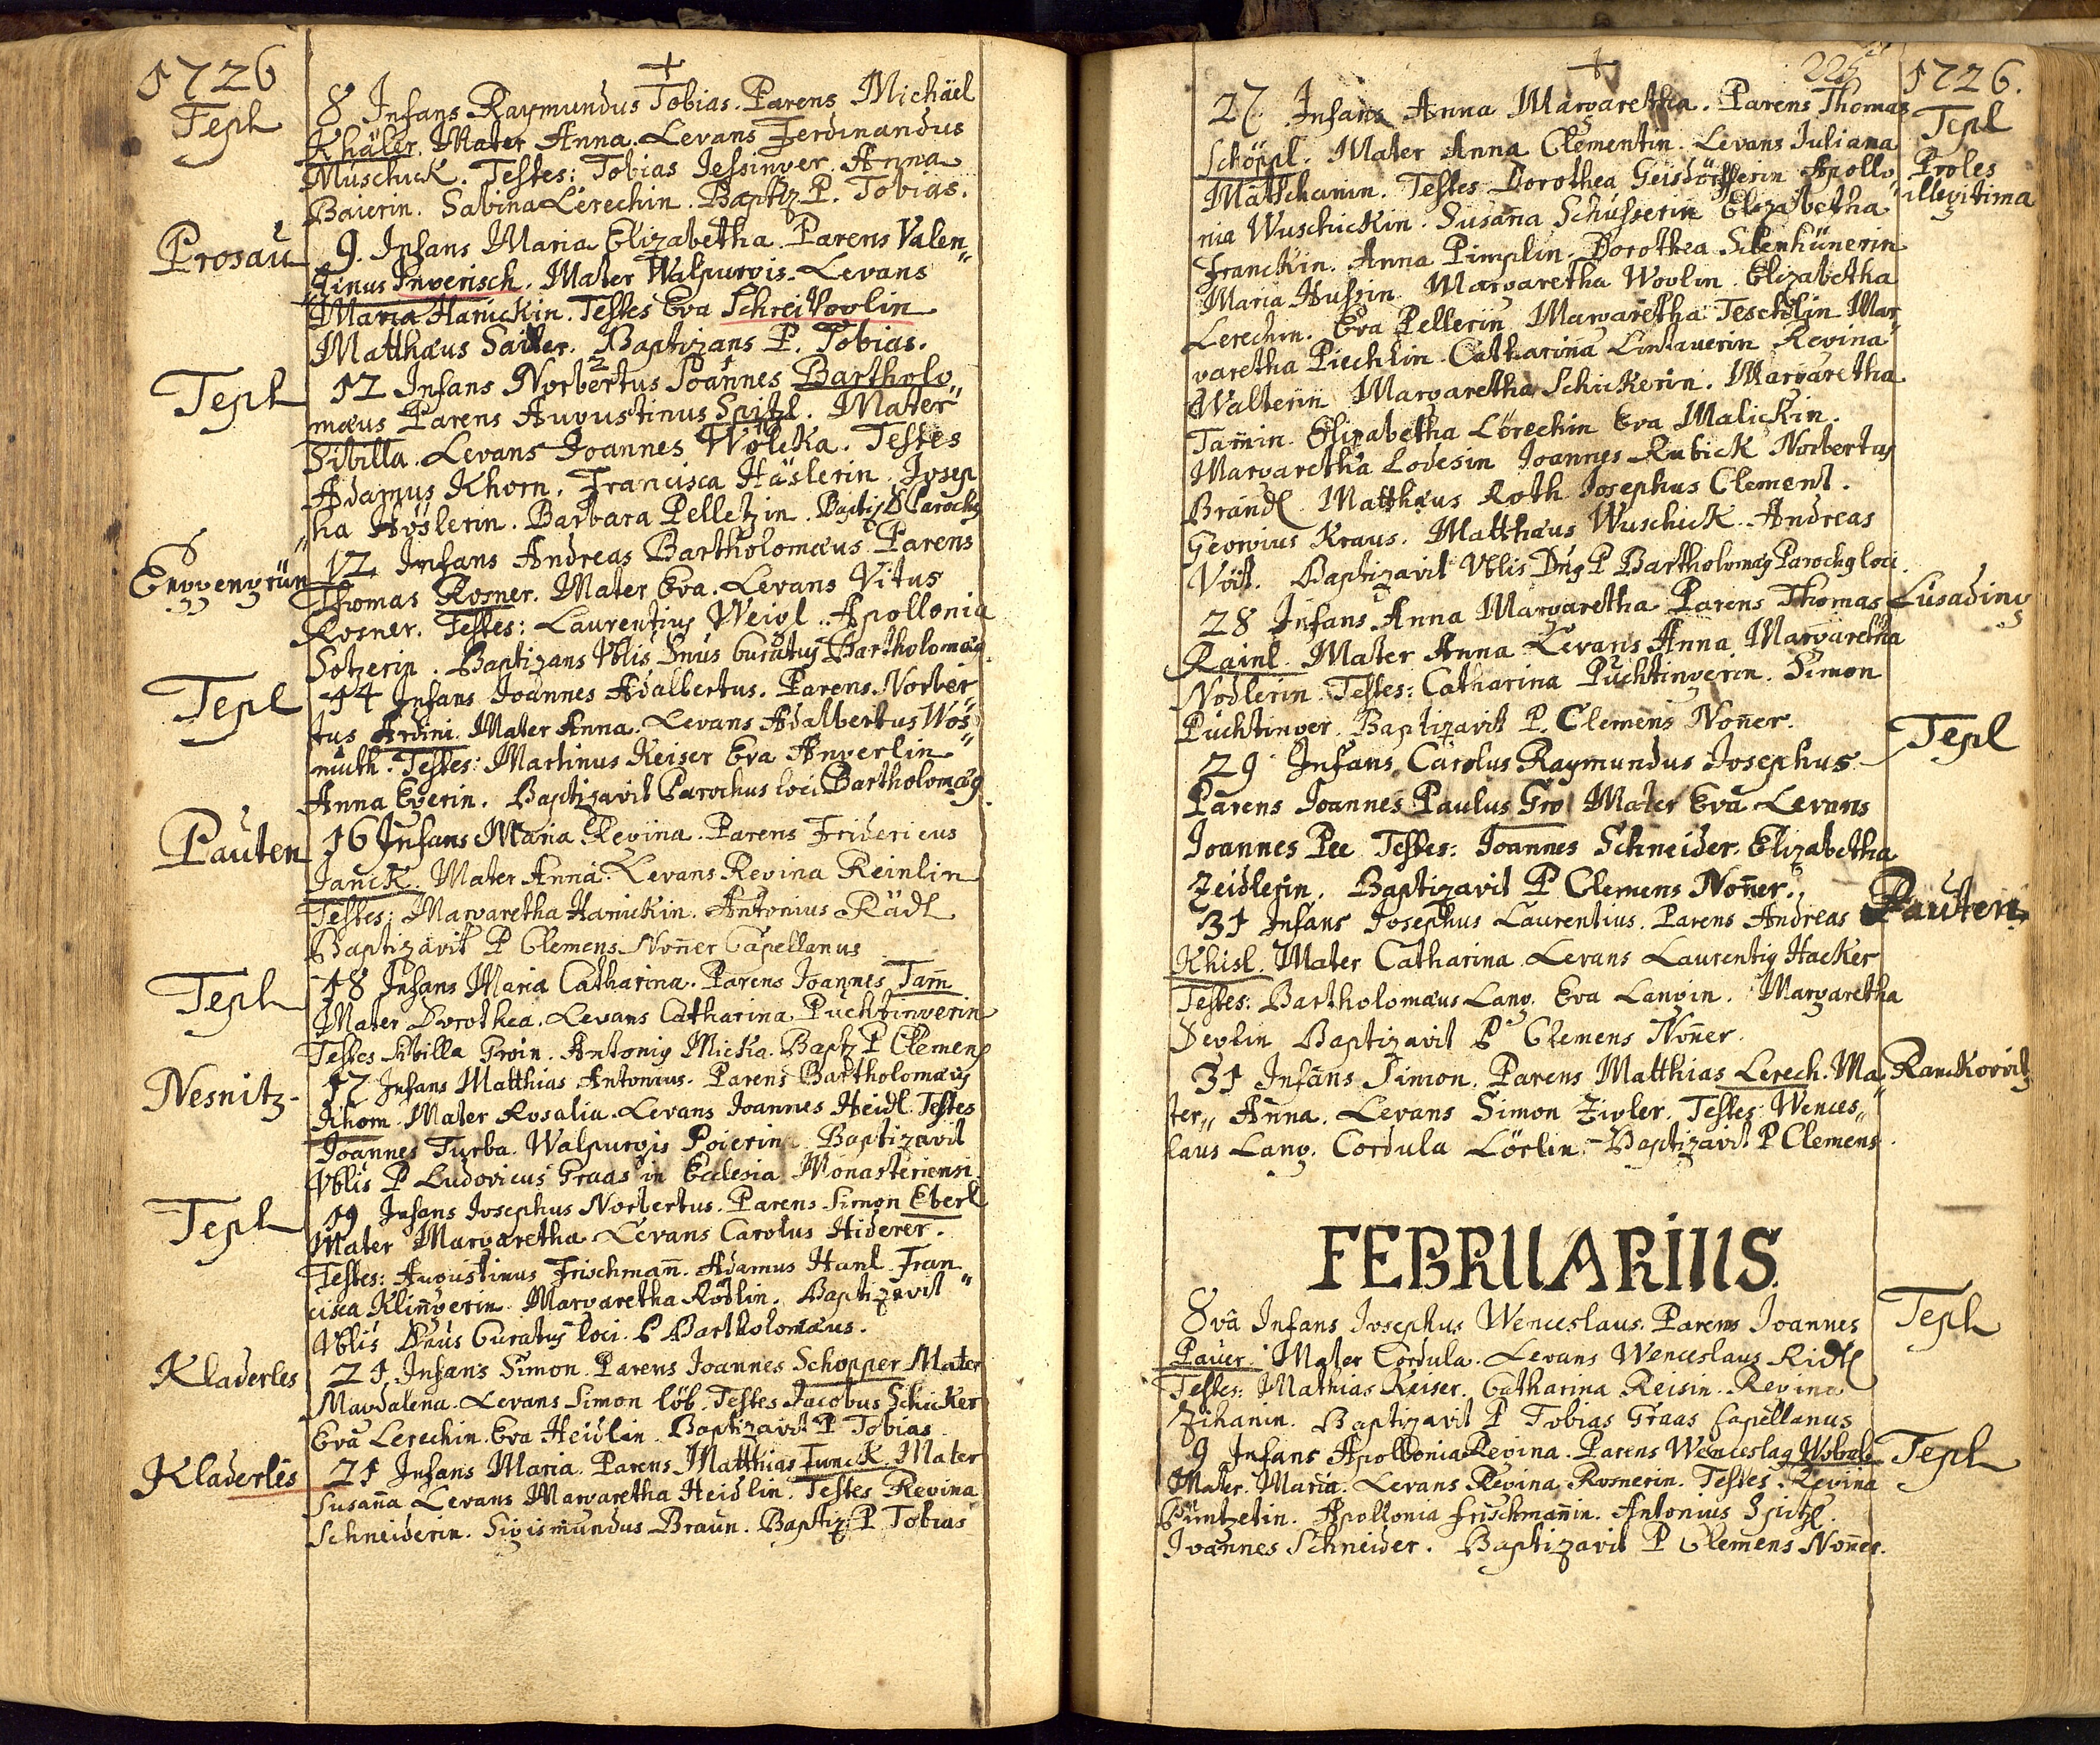 1726
+
Tepl
8 Infans Raymundus Tobias. Parens Michäel
Khäler. Mater Anna. Levans Ferdinandus
Muschick. Testes: Tobias Jessinger. Anna
Baierin. Sabina Lerechin. Baptiz. P. Tobias.
Prosau
9. Infans Maria Elizabetha. Parens Valen„
tinus Ingerisch. Mater Walpurgis. Levans
Maria Hanickin. Testes Eva Schreivoglin
Matthæus Sailer. Baptizans P. Tobias.
Tepl
12 Infans Norbertus Joannes Bartholo„
mæus Parens Augustinus Spitzl. Mater
Sibilla. Levans Joannes Wolcka. Testes
Adamus Khorn. Francisca Häslerin. Josep„
ha Höslerin. Barbara Pelletzin. Baptiz D Parochg
Eggengrün
12 Infans Andreas Bartholomæus. Parens
Thomas Rosner. Mater Eva. Levans Vitus
Rosner. Testes: Laurentius Weigl. Apollonia
Sotzerin. Baptizans Vblis Dnus Curatus Bartholomæg.
Tepl
14 Infans Joannes Adalbertus. Parens Norber„
tus Ardini. Mater Anna. Levans Adalbertus Wos„
muth. Testes: Martinus Keiser Eva Angerlin
Anna Egerin. Baptizavit Parochus loci Bartholomæg.
Pauten
16 Infans Maria Regina. Parens Fridericus
Janck. Mater Anna. Levans Regina Reinlin
Testes: Margaretha Hanickin. Antonius Rädl
Baptizavit P Clemens Noñer Capellanus
Tepl
18 Infans Maria Catharina. Parens Joannes Tam̃
Mater Dorothea. Levans Catharina Puchtingerin
Testes Sibilla Groin. Antonig Micka. Baptz P Clemens
Nesnitz
17 Infans Matthias Antonius. Parens Bartholomæus
Khom. Mater Rosalia. Levans Joannes Heidl. Testes
Joannes Turba. Walpurgis Poierin. Baptizavit
Vblis P Ludovicus Graas in Ecclesia Monasteriensi
Tepl
19 Infans Josephus Norbertus. Parens Simon Eberl
Mater Margaretha. Levans Carolus Hiderer.
Testes: Augustinus Frischmañ. Adamus Hanl. Fran„
cisca Klingerin. Margaretha Rödlin. Baptizavit
Vblis Dnus Curatus loci P Bartholomæus.
Kladerles
21. Infans Simon. Parens Joannes Schopper Mater
Magdalena. Levans Simon löb. Testes Jacobus Schicker
Eva Lerechin. Eva Heidlin. Baptizavit P Tobias
Kladerles
21 Infans Maria. Parens Matthias Funck. Mater
Susaña Levans Margaretha Heidlin. Testes Regina
Schneiderin. Sigismundus Braun. Baptiz: P Tobias
+
225
1726.
Tepl
Proles
illegitima
27. Infans Anna Margaretha. Parens Thomas
Schöppl. Mater Anna Clementin. Levans Juliana
Matschanin. Testes Dorothea Geisdörfferin Apollo„
nia Wuschickin. Susaña Schusserin Elizabetha
Franckin. Anna Pimplin. Dorothea Silenhünerin
Maria Hussin Margaretha Woglin. Elizabetha
Lerechin. Eva Pellerin Margaretha Teschlin Mar„
garetha Piechlin Catharina Lindauerin Regina
Walterin Margaretha Schickerin. Margaretha
Tam̃in. Elizabetha Lörechin Eva Malickin.
Margaretha Lodesin Joannes Kubick Norbertus
Brandl. Matthæus Roth Josephus Clement.
Georgius Kraus. Matthæus Wuschick. Andreas
Voit. Baptizavit Vblis Dng P Bartholomæg Parochg loci.
Lusading
28 Infans Anna Margaretha Parens Thomas
Rainl. Mater Anna Levans Anna Margaretha
Nodlerin Testes: Catharina Puchtingerin. Simon
Puchtinger. Baptizavit P. Clemens Noñer.
Tepl
29 Infans Carolus Raymundus Josephus
Parens Joannes Paulus Gro Mater Eva Levans
Joannes Pee Testes: Joannes Schneider. Elizabetha
Zeidlerin. Baptizavit P Clemens Noñer.
Pauten
31 Infans Josephus Laurentius. Parens Andreas
Khisl. Mater Catharina. Levans Laurentig Hacker
Testes: Bartholomæus Lang. Eva Langin. Margaretha
Deglin Baptizavit P Clemens Noñer.
Ranckowitz
31 Infans Simon. Parens Matthias Lerech. Ma„
ter„ Anna. Levans Simon Zigler. Testes: Wences„
laus Lang. Cordula Lörlin. Baptizavit P Clemens.
FEBRUARIUS.
Tepl
8vâ Infans Josephus Wenceslaus. Parens Joannes
Pauer. Mater Cordula. Levans Wenceslaus Ridl
Testes: Mathias Keiser. Catharina Reisin. Regina
Zihanin. Baptizavit P Tobias Graas Capellanus
Tepl
9 Infans Apollonia Regina. Parens Wenceslag Wobale
Mater. Maria. Levans Regina Rosnerin. Testes. Regina
Püntzetin. Apollonia Frischmañin. Antonius Spitzl.
Joannes Schneider. Baptizavit P Clemens Noñer.